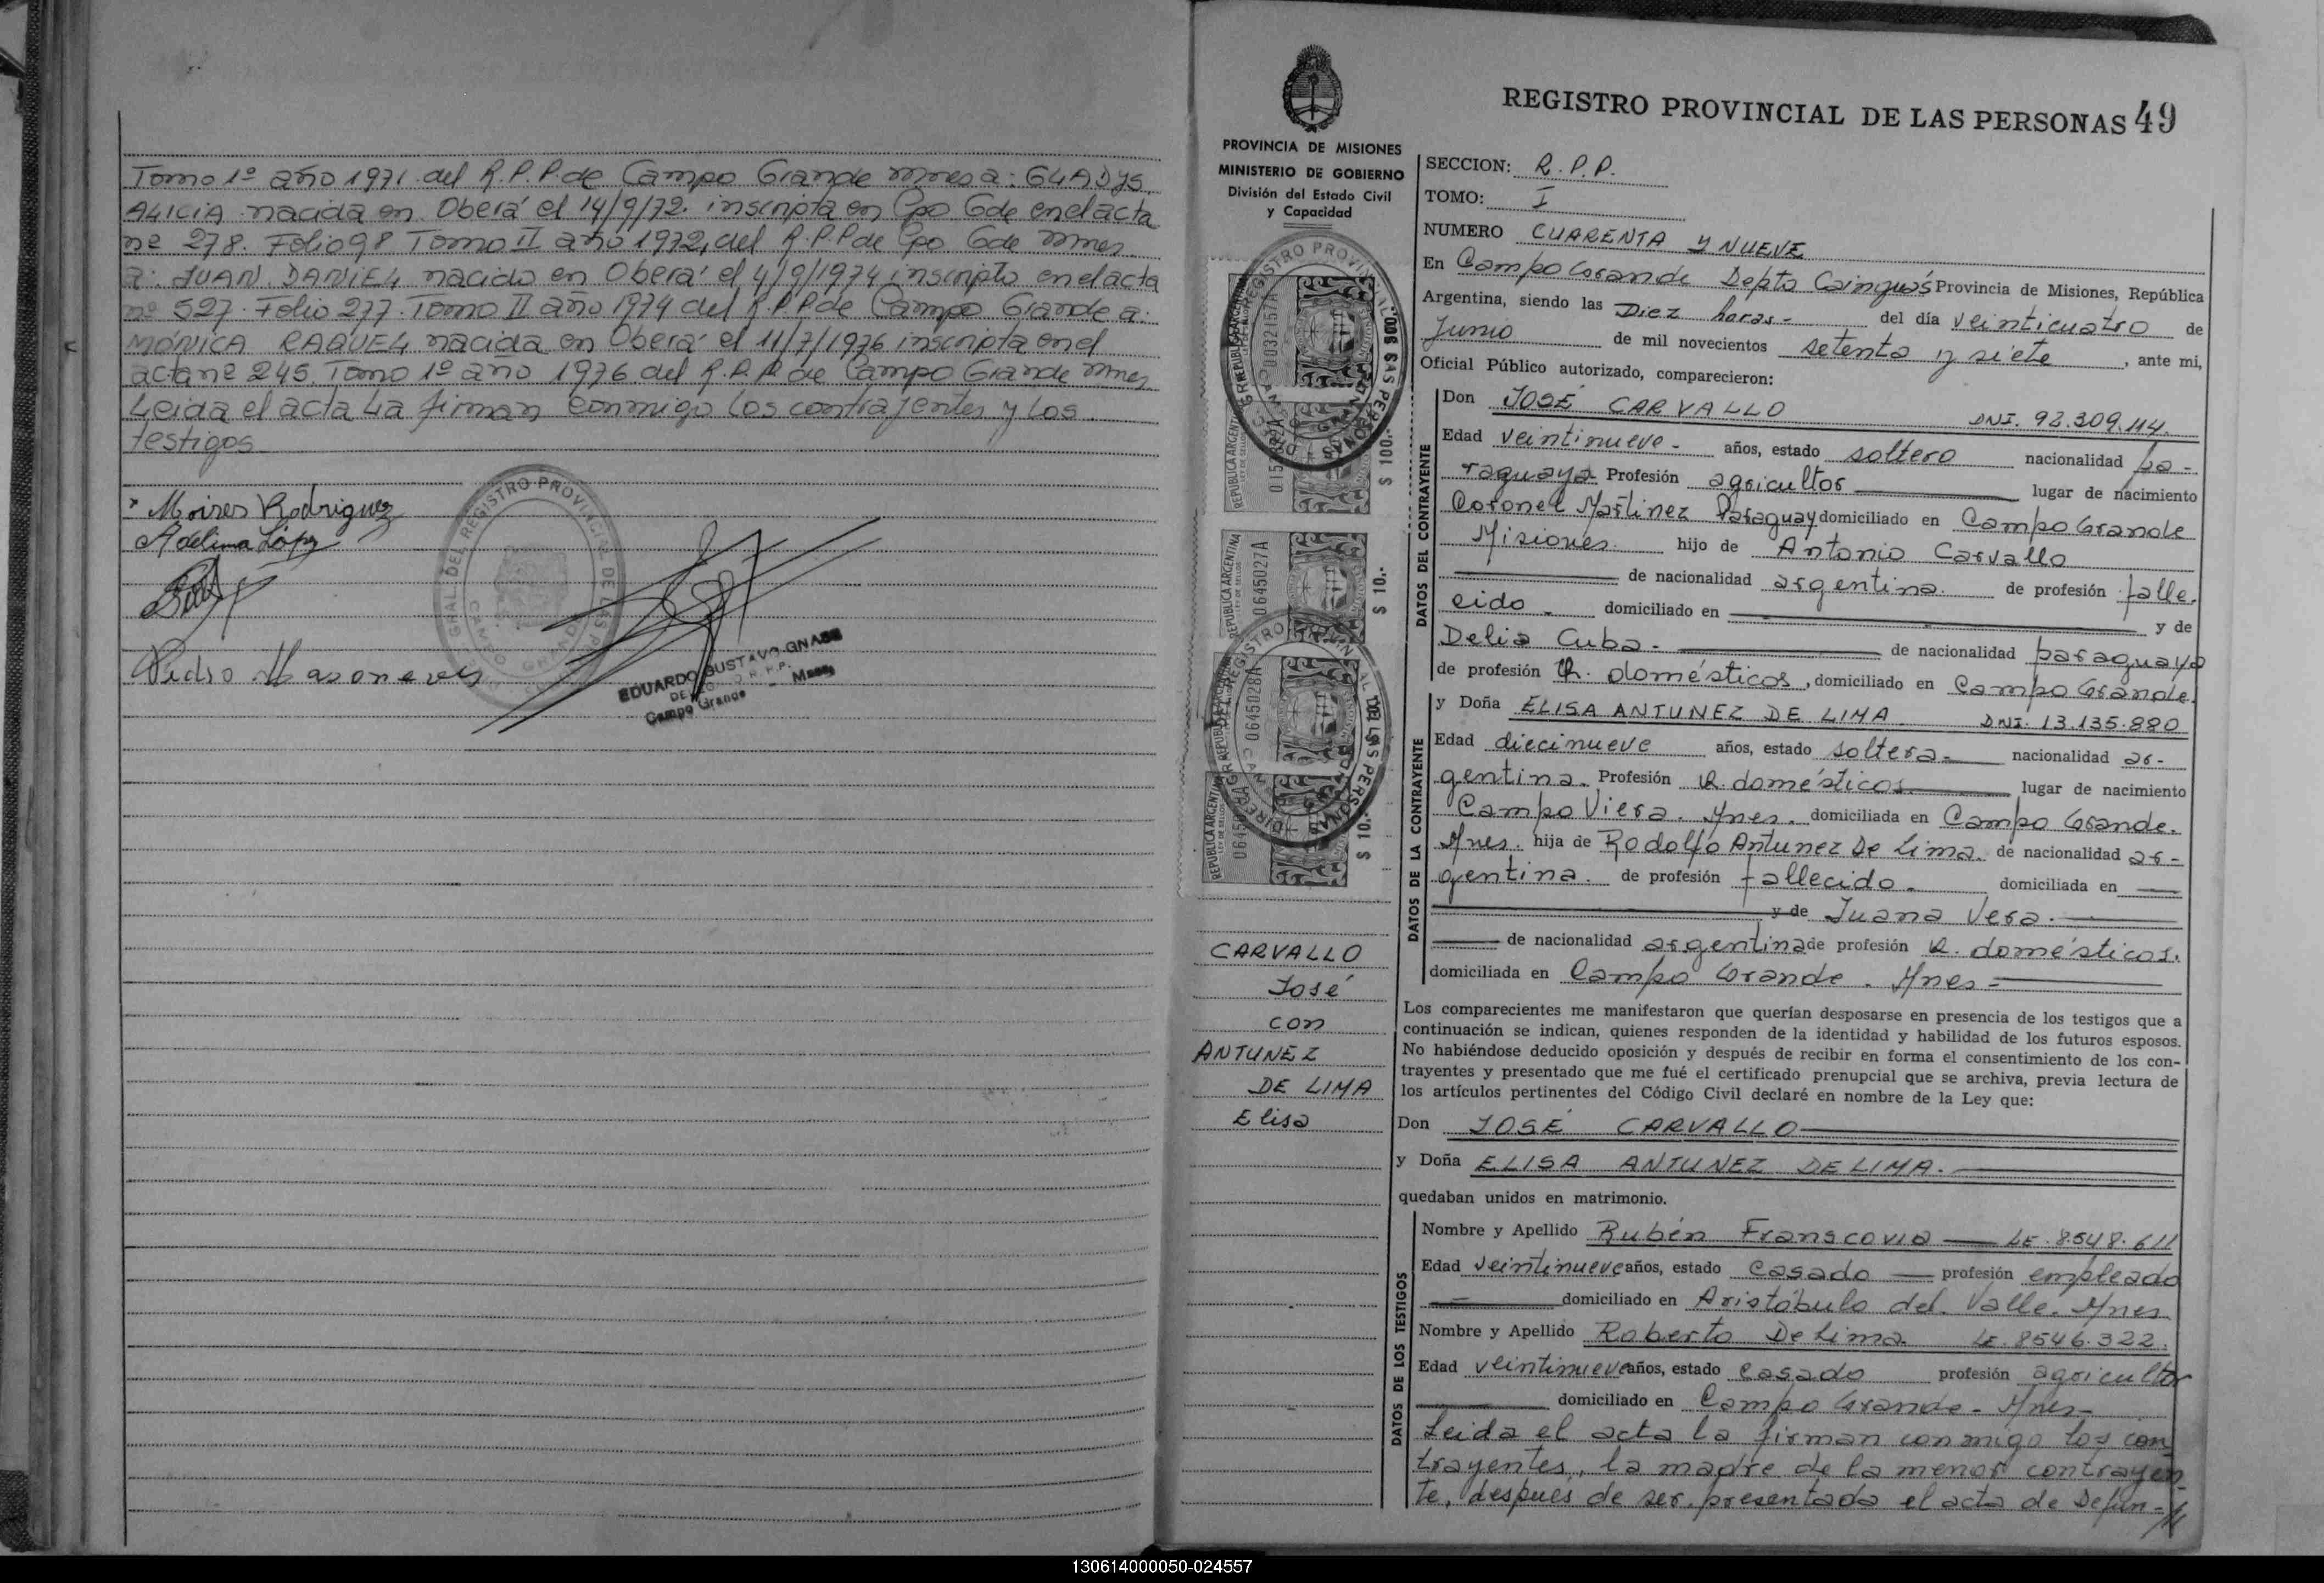 Tomo 1º año 1971 del R.P.P. de Campo Grande Mnes a: GLADYS
ALICIA nacida en Oberá el 14/9/72. inscripta en Cpo Gde en el acta
nº 278. Folio 98 Tomo II año 1972, del R.P.P de Cpo Gde Mnes.
a: JUAN DANIEL nacido en Oberá el 4/9/1974 inscripto en el acta
nº 527. Folio 277. Tomo II año 1974 del R.P.P de Campo Grande a:
MÓNICA RAQUEL nacida en Oberá el 11/7/1976 inscripta en el
acta nº 245. Tomo 1º año 1976 del R.P.P. de Campo Grande Mnes
Leida el acta La firman conmigo los contrayentes y los
testigos
Moises Rodriguez
Adelina López
Pedro
EDUARDO GUSTAVO GNASS
Campo Grande - Mnes
REGISTRO PROVINCIAL DE LAS PERSONAS 49
PROVINCIA DE MISIONES
MINISTERIO DE GOBIERNO
División del Estado Civil
y Capacidad
SECCION: R.P.P.
TOMO: I
NUMERO CUARENTA Y NUEVE
En Campo Grande Depto Cainguás Provincia de Misiones, República
Argentina, siendo las Diez horas- del día veinticuatro de
Junio de mil novecientos setenta y siete, ante mi,
Oficial Público autorizado, comparecieron:
DATOS DEL CONTRAYENTE
Don JOSÉ CARVALLO DNI. 92.309.114.
Edad veintinueve- años, estado soltero nacionalidad pa-
raguaya Profesión agricultor lugar de nacimiento
Coronel Martinez Paraguay domiciliado en Campo Grande
Misiones hijo de Antonio Carvallo
de nacionalidad argentina. de profesión falle.
cido - domiciliado en y de
Delia Cuba.- de nacionalidad paraguaya
de profesión Q. domésticos, domiciliado en Campo Grande.
DATOS DE LA CONTRAYENTE
y Doña ELISA ANTUNEZ DE LIMA DNI. 13.135.880
Edad diecinueve años, estado soltera- nacionalidad ar-
gentina. Profesión Q. domésticos lugar de nacimiento
Campo Viera. Mnes. domiciliada en Campo Grande.
Mnes. hija de Rodolfo Antunez De Lima. de nacionalidad ar-
gentina. de profesión fallecido. domiciliada en
y de Juana Vera.
de nacionalidad argentina de profesión Q. domésticos.
domiciliada en Campo Grande. Mnes-
Los comparecientes me manifestaron que querían desposarse en presencia de los testigos que a
continuación se indican, quienes responden de la identidad y habilidad de los futuros esposos.
No habiéndose deducido oposición y después de recibir en forma el consentimiento de los con-
trayentes y presentado que me fué el certificado prenupcial que se archiva, previa lectura de
los artículos pertinentes del Código Civil declaré en nombre de la Ley que:
Don JOSÉ CARVALLO
y Doña ELISA ANTUNEZ DE LIMA.
quedaban unidos en matrimonio.
CARVALLO
José
con
ANTUNEZ
DE LIMA
Elisa
DATOS DE LOS TESTIGOS
Nombre y Apellido Rubén Franscovia LE. 8.548.611
Edad veintinueve años, estado casado profesión empleado
domiciliado en Aristóbulo del Valle. Mnes
Nombre y Apellido Roberto De Lima LE. 8546.322.
Edad veintinueve años, estado casado profesión agricultor
domiciliado en Campo Grande- Mnes-
Leida el acta la firman conmigo los con-
trayentes, la madre de la menor contrayen-
te, después de ser presentado el acta de Defun-
130614000050-024557